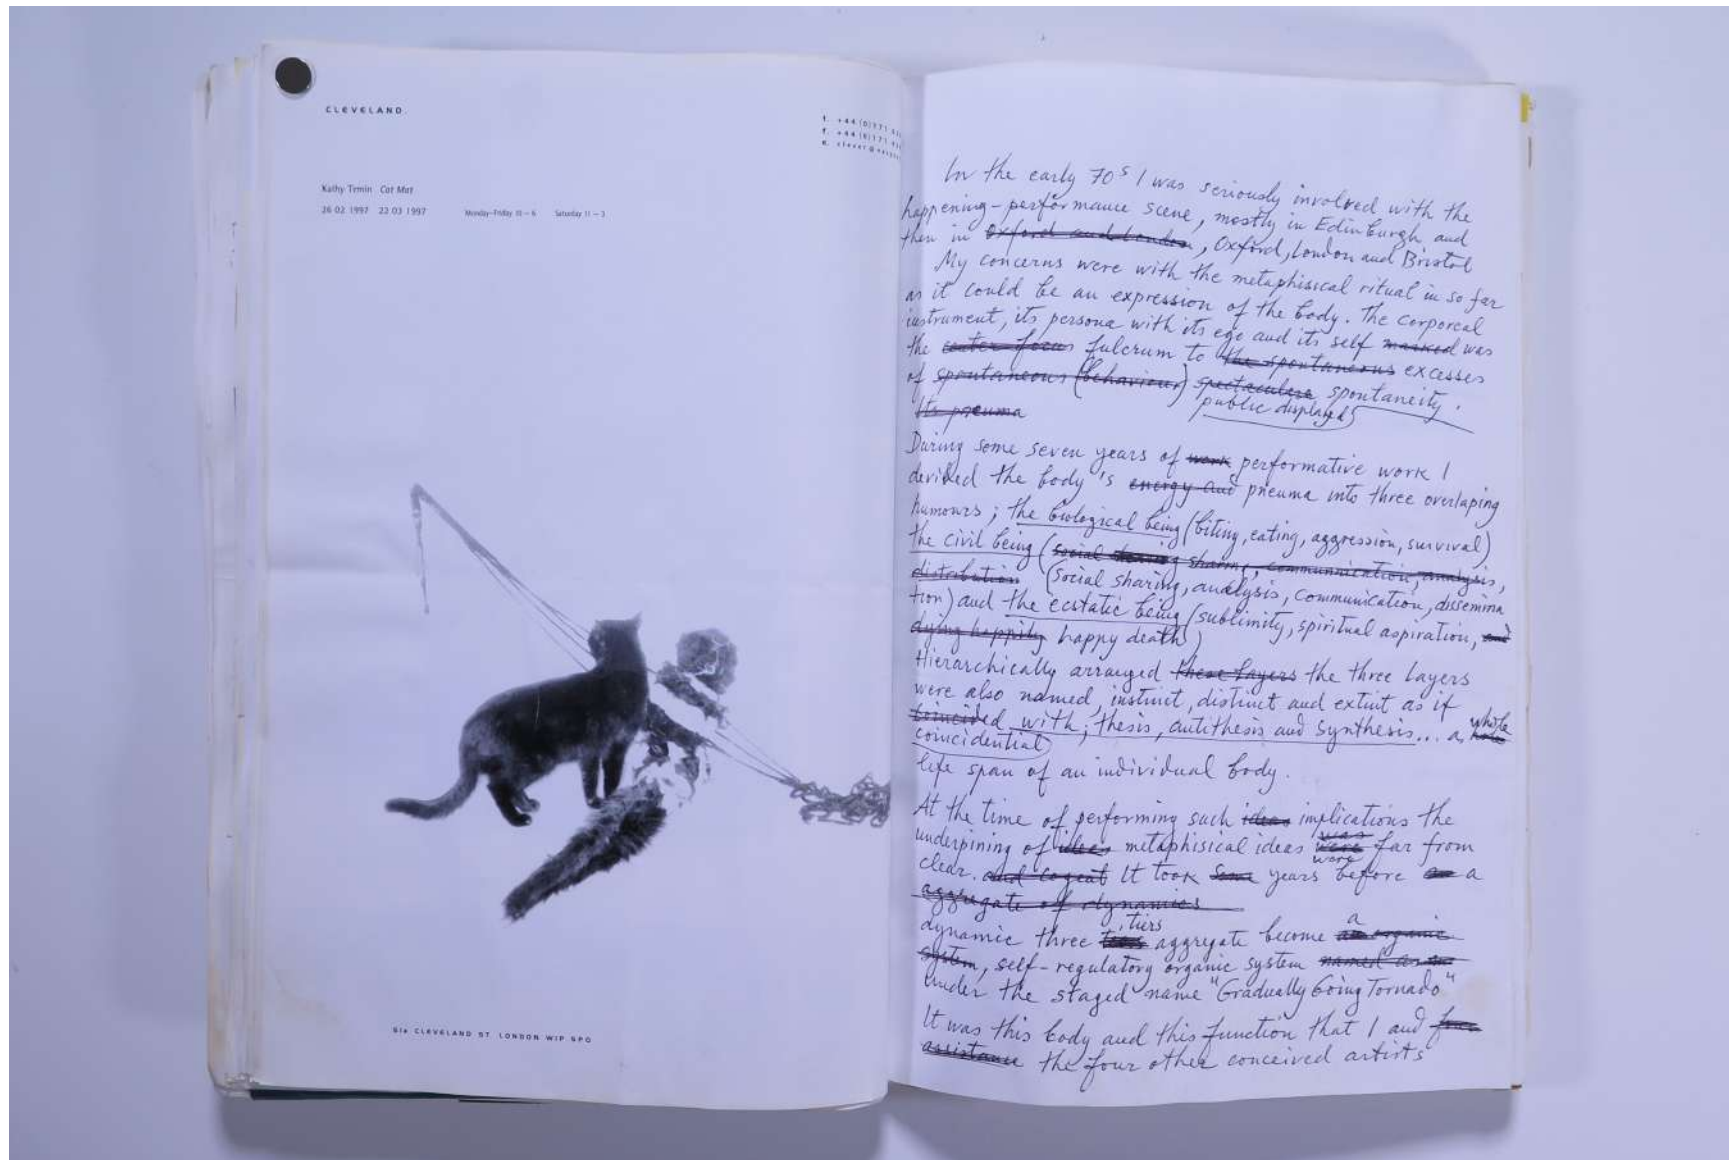 CLEVELAND.
t. +44 (0)171
f. +44 (0)171
e.
Kathy Temin Cat Mat
26 02 1997 22 03 1997 Monday–Friday 10 – 6 Saturday 11 – 3
61a CLEVELAND ST LONDON W1P 5PQ
In the early 70s I was seriously involved with the
happening-performance scene, mostly in Edinburgh and
then in Oxford and London, Oxford, London and Bristol
My concerns were with the metaphisical ritual in so far
as it could be an expression of the body. The corporeal
instrument, its persona with its ego and its self marked was
the center focus fulcrum to the spontaneous excesses
of spontaneous (behaviour) spectaculare spontaneity.
Its pneuma public displayed
During some seven years of work performative work I
devided the body's energy and pneuma into three overlaping
humours; the biological being (biting, eating, aggression, survival)
the civil being (social sharing, communication, analysis,
distribution (social sharing, analysis, communication, dissemina
tion) and the ecstatic being (sublimity, spiritual aspiration, and
dying happily happy death)
Hierarchically arranged these layers the three layers
were also named, instinct, distinct and extint as if
coincided with; thesis, antithesis and synthesis... a whole
coincidential
life span of an individual body.
At the time of performing such ideas implications the
underpining of metaphisical ideas were was far from
were
clear. and cogent It took some years before a
aggregate of dynamics
dynamic three tiers aggregate become a an organic
system, self-regulatory organic system named as
under the staged name "Gradually Going Tornado"
It was this body and this function that I and four
assistance the four other conceived artists